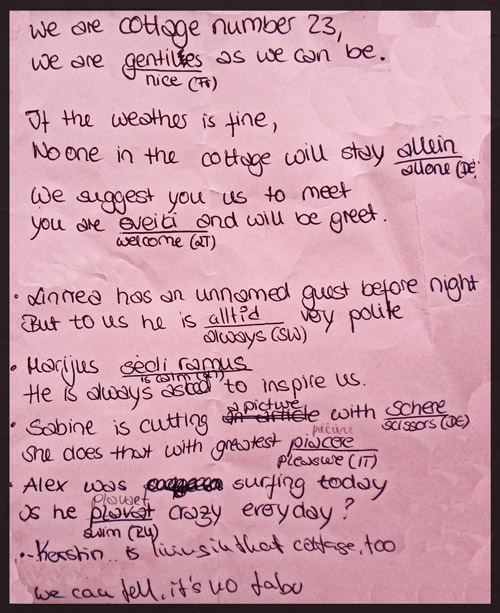 We are cottage number 23,
we are gentilles as we can be.
nice (Fr)
If the weather is fine,
No one in the cottage will stay allein
allone (DE)
We suggest you us to meet
you are sveiki and will be greet.
welcome (LT)
• Linnea has an unnamed guest before night
But to us he is alltid very polite
always (SW)
• Marijus sėdi ramus
is calm (LT)
He is always to inspire us.
• Sabine is cutting a picture with Schere
scissors (DE)
She does that with greatest piacere
pleasure (IT)
• Alex was surfing today
Is he plavat crazy everyday?
swim (RU)
• Kerstin is living in that cottage, too
we can tell, it's no tabu